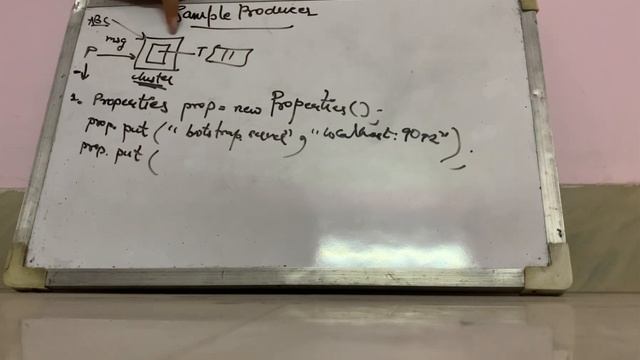 Sample Producer
ABC
msg
P T
cluster
1. Properties prop = new Properties();
prop.put("bootstrap.server", "localhost:9092").
prop.put(